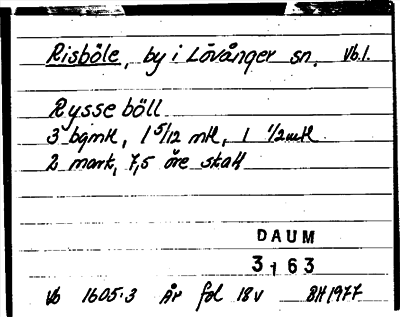 Risböle, by i Lövånger sn. Vb.l.
Rysse böll
3 bgmtl, 1 5/12 mtl, 1 1/2 mtl
2 mark, 7,5 öre skatt
DAUM
3163
Vb 1605:3 År fol 18v BH 1977